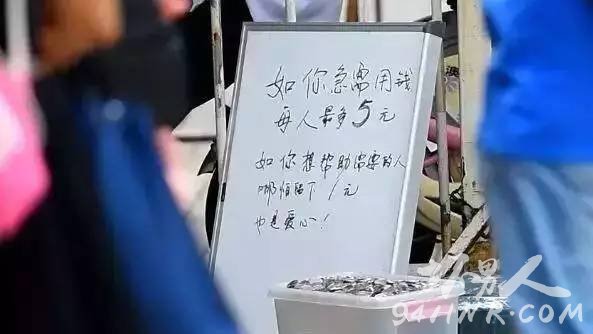 如你急需用钱
每人最多5元
如你想帮助需要的人
哪怕留下1元
也是爱心!
男人
94HNR.COM